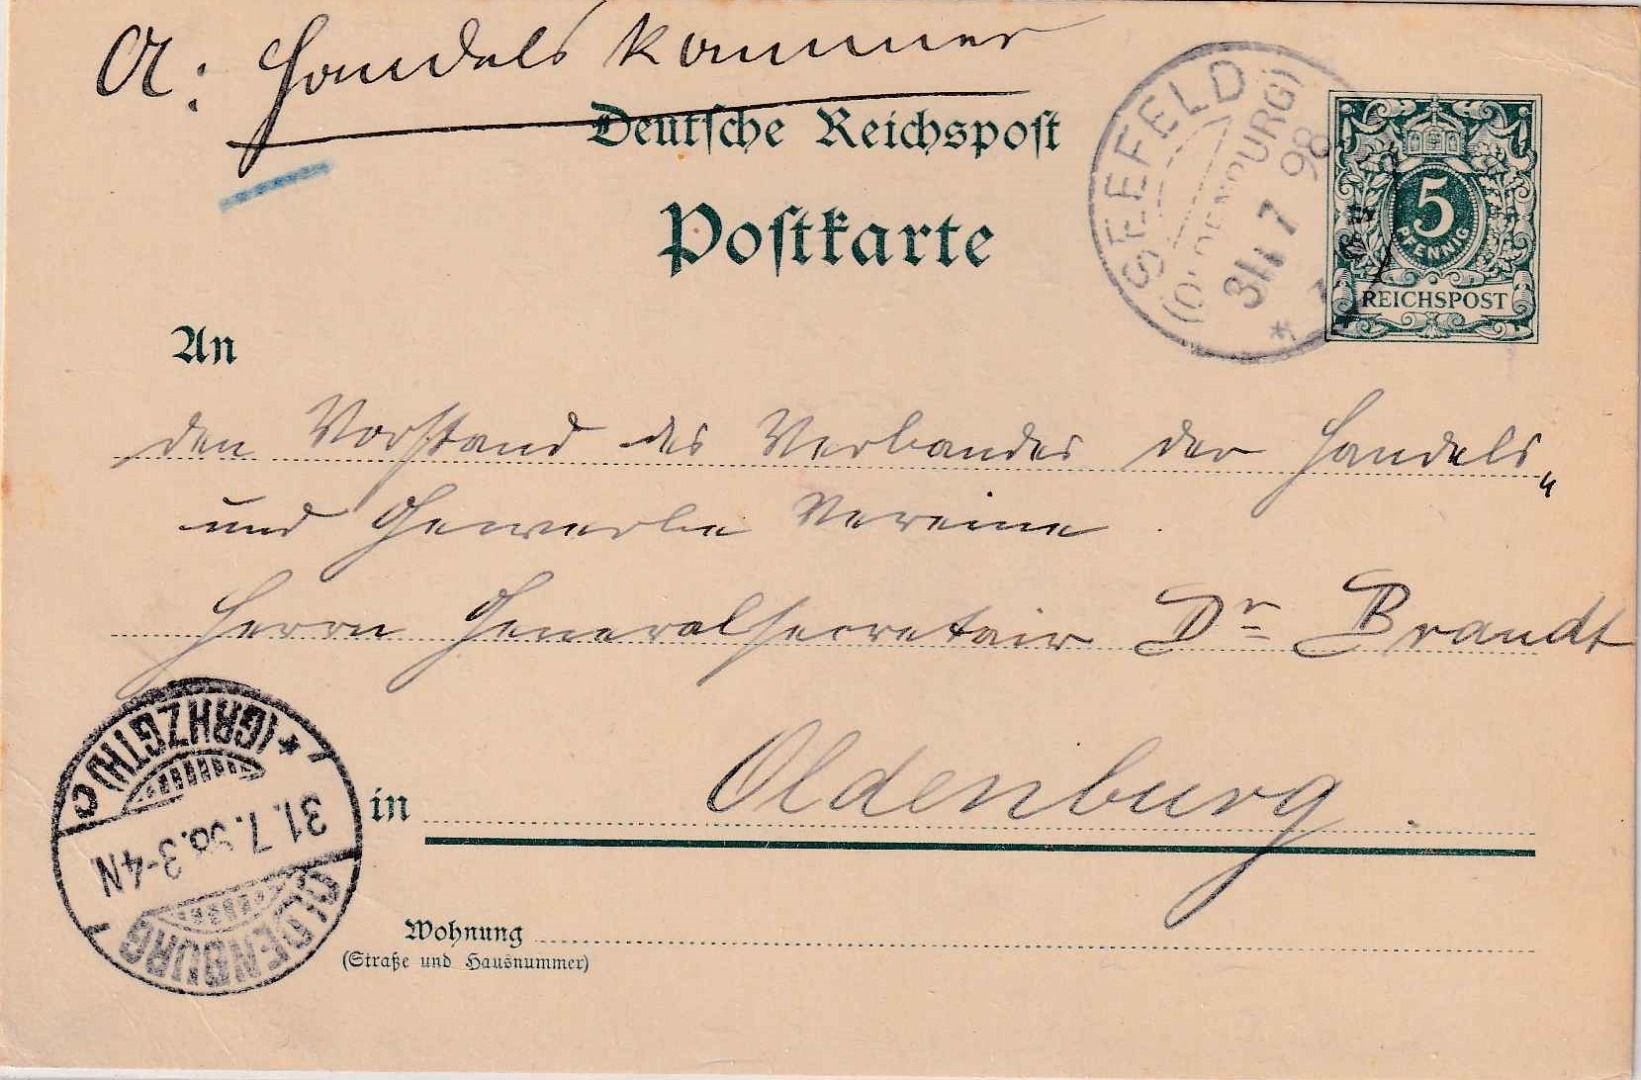 A: Handelskammer
Deutsche Reichspost
Postkarte
SEEFELD
(OLDENBURG)
31 7 98
5
PFENNIG
REICHSPOST
An
den Vorstand des Verbandes der Handels„
und Gewerbe Vereine.
Herrn Generalsecretair Dr Brandt
in Oldenburg.
OLDENBURG
31.7.98.3-4N
* (GRHZGTH) C
Wohnung
(Straße und Hausnummer)